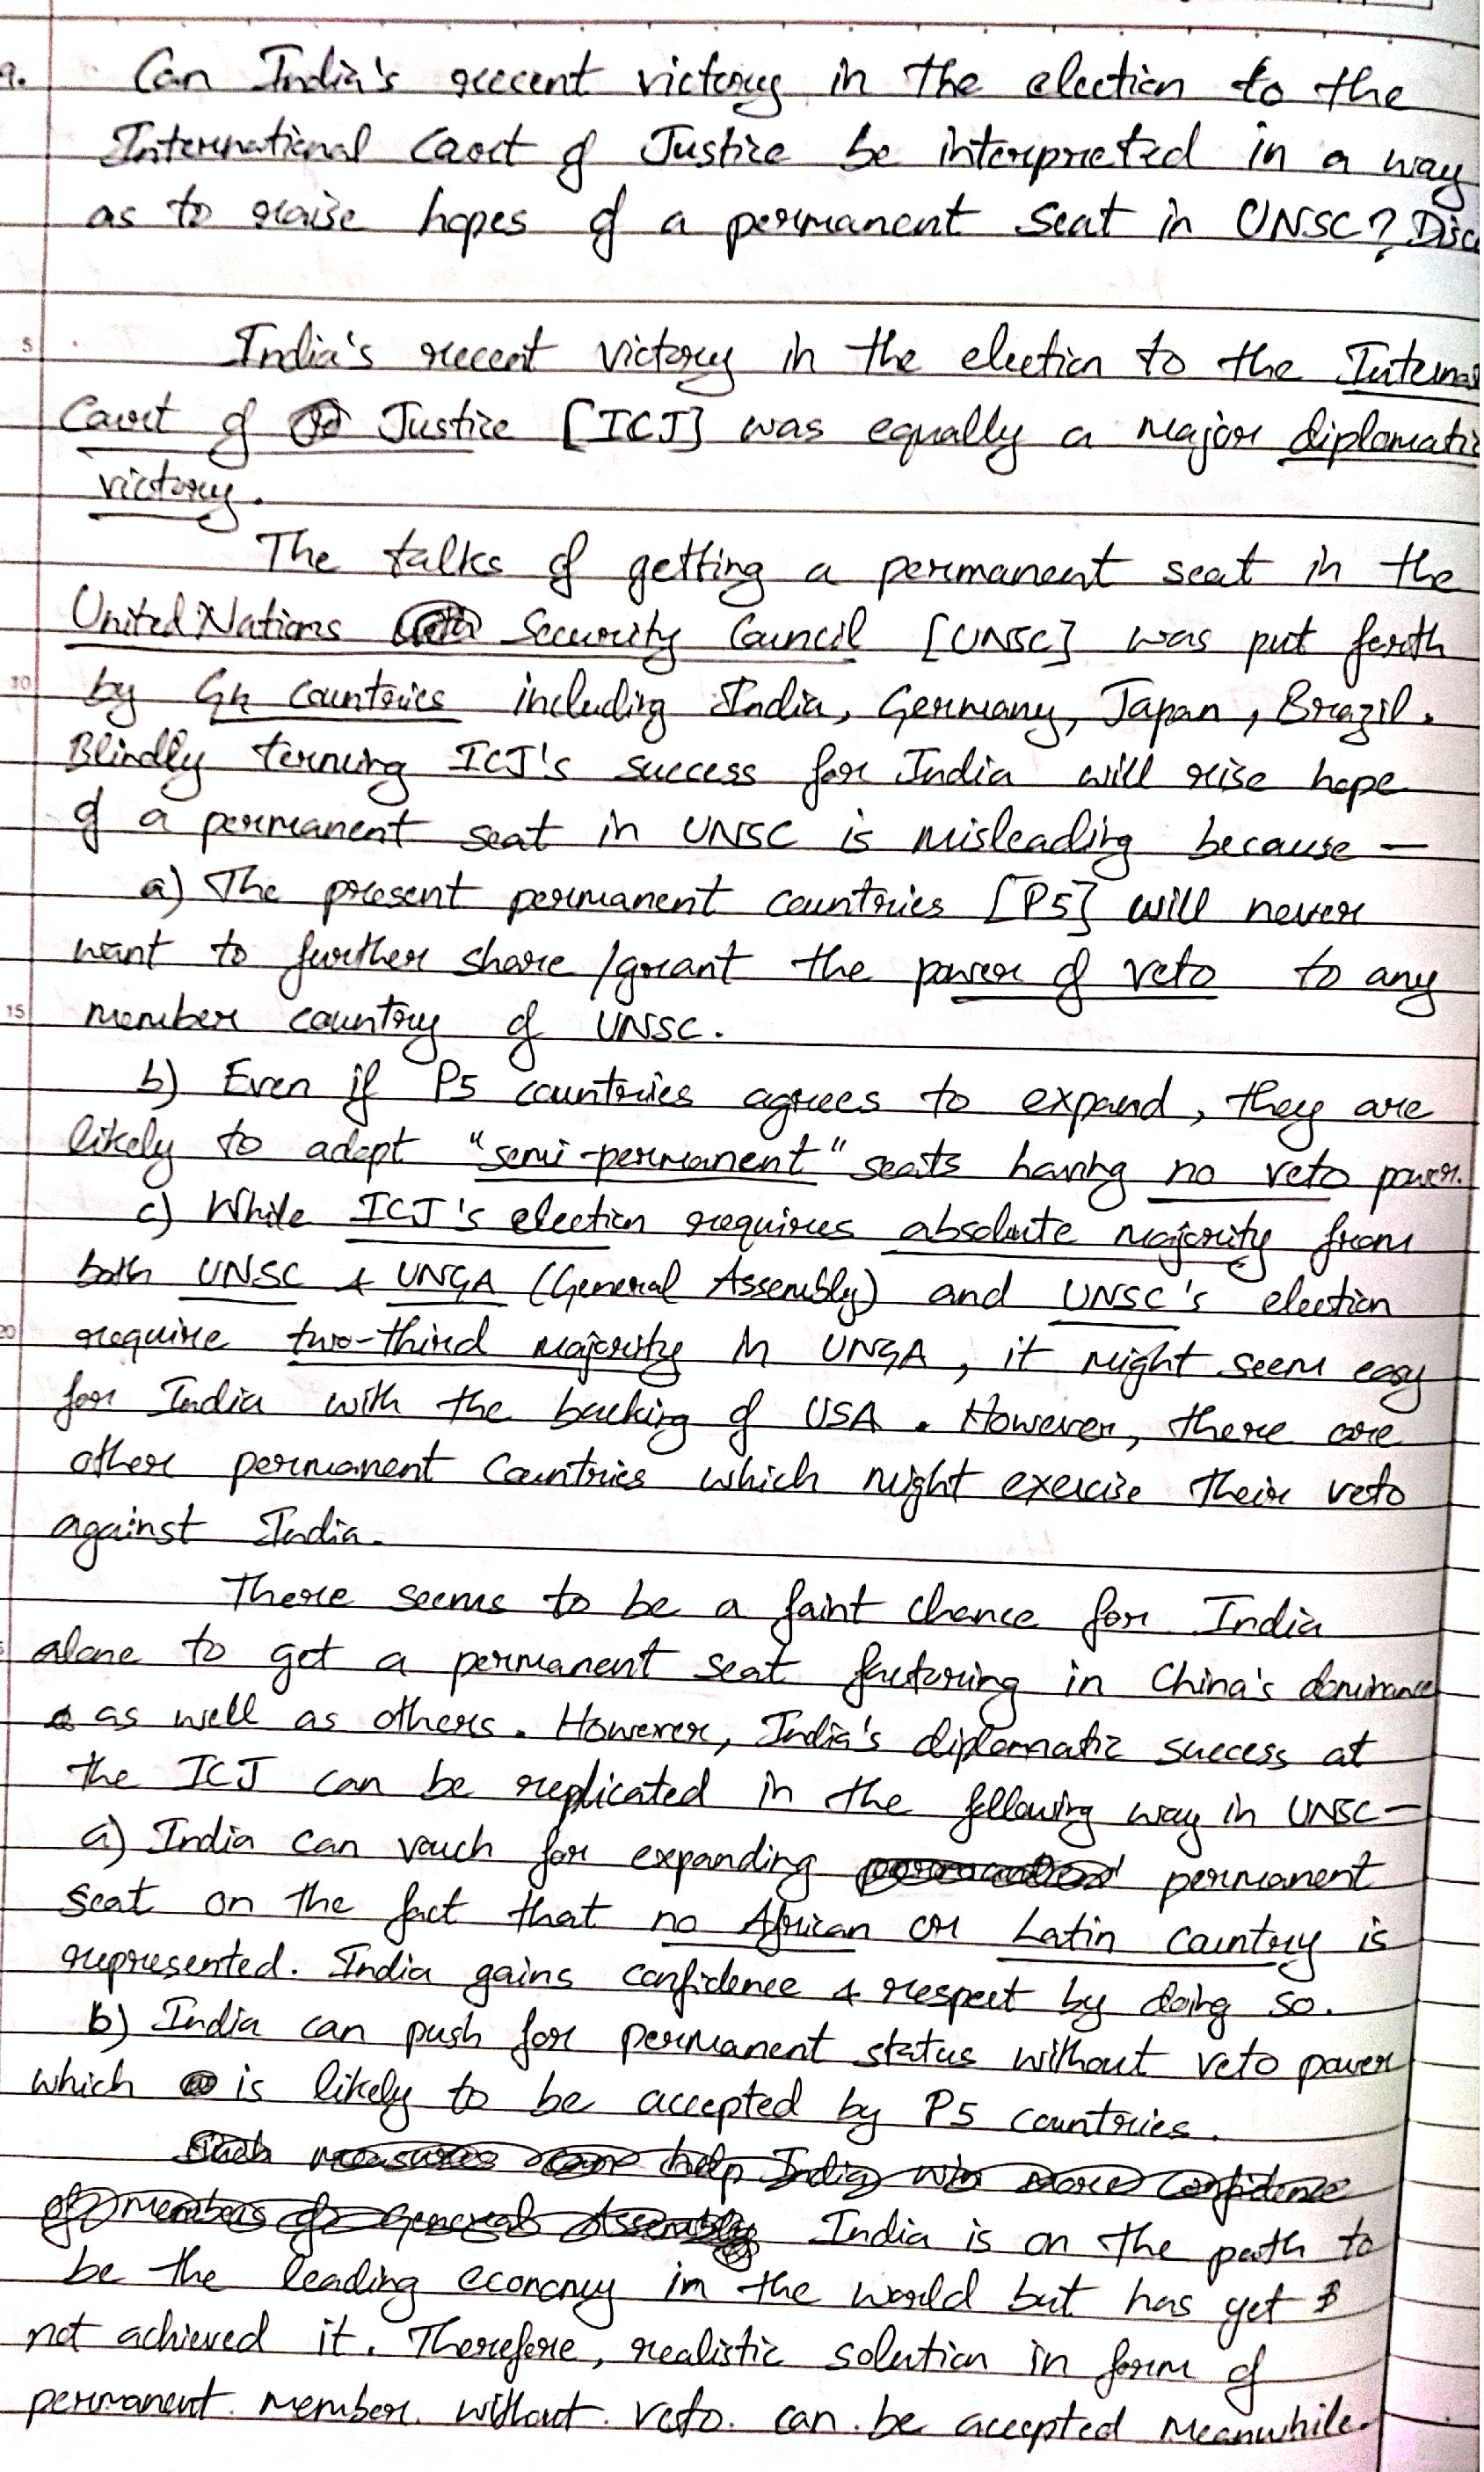 Q. Can India's recent victory in the election to the
International Court of Justice be interpreted in a way
as to raise hopes of a permanent seat in UNSC? Disc
5
India's recent victory in the election to the Interna
Court of Justice [ICJ] was equally a major diplomatic
victory.
The talks of getting a permanent seat in the
United Nations Security Council [UNSC] was put forth
10
by G4 countries including India, Germany, Japan, Brazil.
Blindly terming ICJ's success for India will rise hope
of a permanent seat in UNSC is misleading because —
a) The present permanent countries [P5] will never
want to further share/grant the power of veto to any
15
member country of UNSC.
b) Even if P5 countries agrees to expand, they are
likely to adopt "semi-permanent" seats having no veto power.
c) While ICJ's election requires absolute majority from
both UNSC & UNGA (General Assembly) and UNSC's election
20
require two-third majority in UNGA, it might seem easy
for India with the backing of USA. However, there are
other permanent countries which might exercise their veto
against India.
There seems to be a faint chance for India
alone to get a permanent seat factoring in China's dominance
as well as others. However, India's diplomatic success at
the ICJ can be replicated in the following way in UNSC—
a) India can vouch for expanding permanent
seat on the fact that no African or Latin country is
represented. India gains confidence & respect by doing so.
b) India can push for permanent status without veto power
which is likely to be accepted by P5 countries.
Such measures can help India win more confidence
of members of General Assembly India is on the path to
be the leading economy in the world but has yet
not achieved it. Therefore, realistic solution in form of
permanent member without veto can be accepted meanwhile.